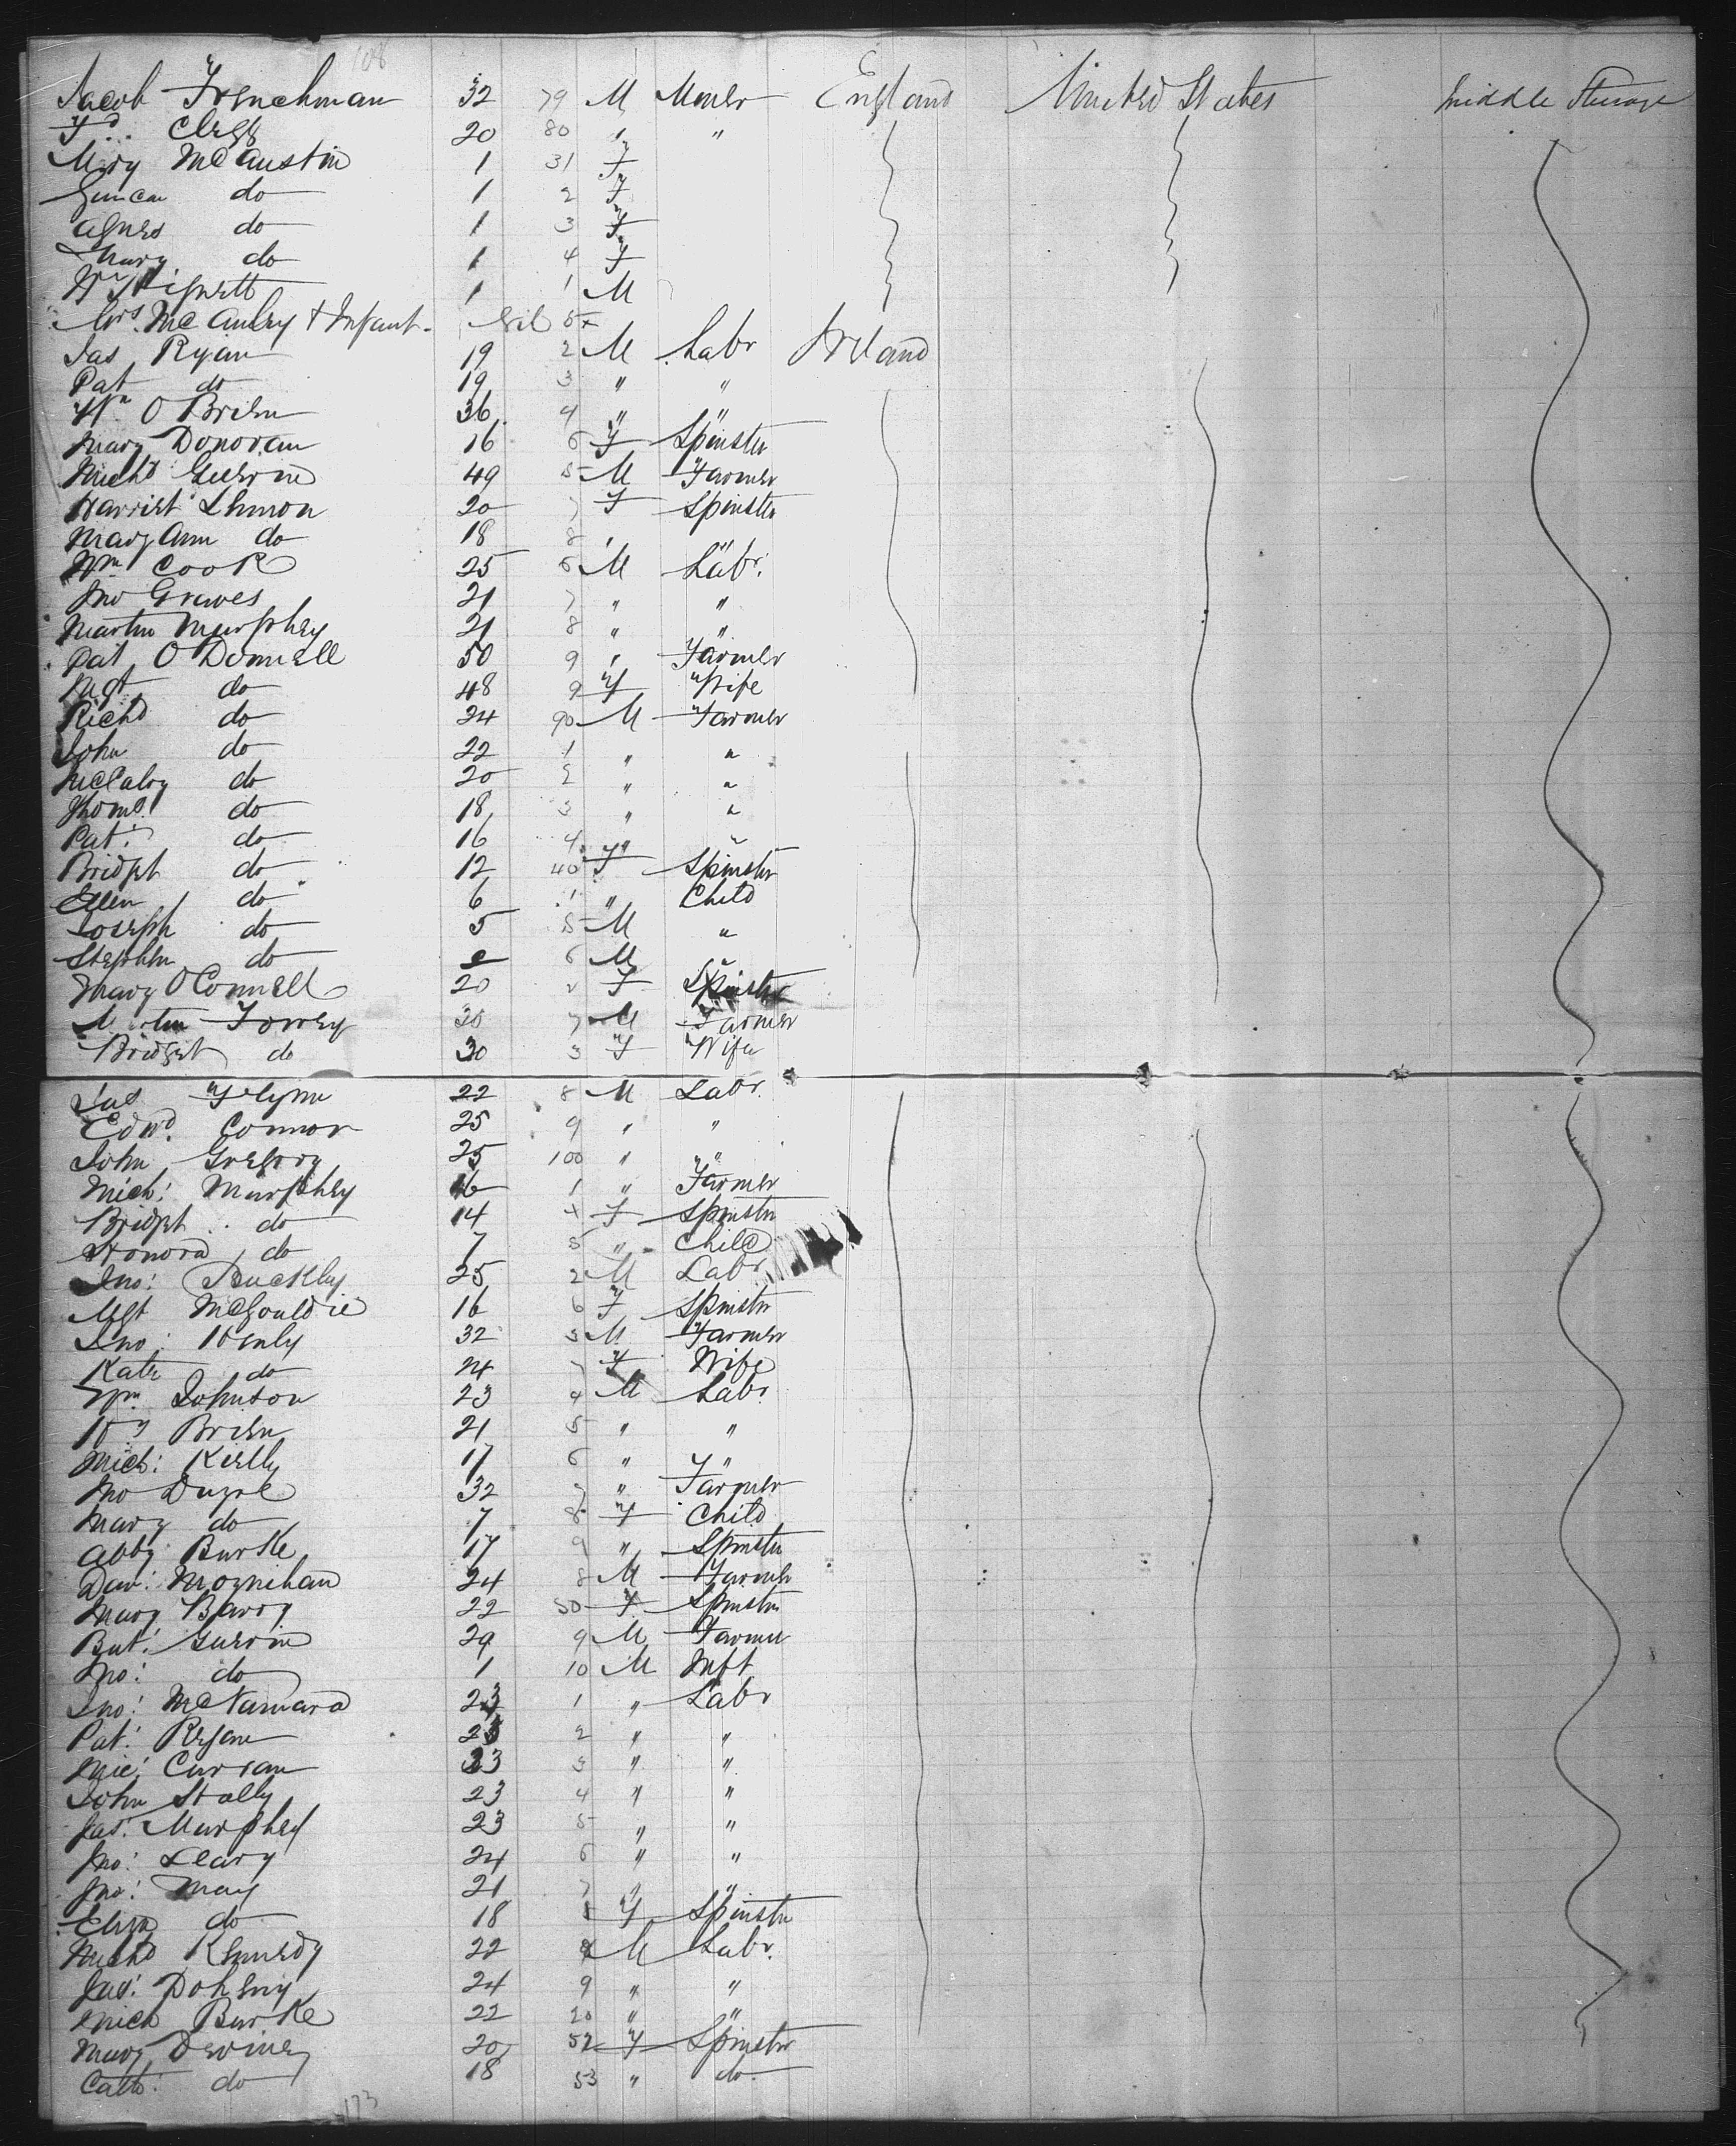 108
Jacob Frenchman 32 79 M Miner England United States Middle Steerage
Fd Clegg 20 80 " "
Mary McAustin 1 31 F
Duncan do 1 2 F
Agnes do 1 3 F
Mary do 1 4 F
Wm 1 1 M
Mrs McAulry + Infant 5
Jas Ryan 19 2 M Labr Ireland
Pat do 19 3 " "
Wm O Brien 36 4 " "
Mary Donovan 16 6 F Spinster
Michd Guerin 49 5 M Farmer
Harriet Lemon 20 7 F Spinster
Mary Ann do 18 8 " "
Wm Cook 25 6 M Labr.
Jno Graves 21 7 " "
Martin Murphey 21 8 " "
Pat O Donnell 50 9 " Farmer
Mgt do 48 9 F Wife
Richd do 24 90 M Farmer
John do 22 1 " "
do 20 2 " "
Thoms. do 18 3 " "
Pat: do 16 4 " "
Bridgt do 12 40 F Spinster
Ellen do 6 1 " Child
Joseph do 5 5 M "
Stephen do 6 M "
Mary O Connell 20 2 F Spinster
Martin Torrey 30 7 M Farmer
Bridget do 30 3 F Wife
Jas Flynn 22 8 M Labr.
Edwd. Connor 25 9 " "
John Gregory 25 100 " "
Mich: Murphey 16 1 " Farmer
Bridgt do 14 4 F Spinster
Honora do 7 5 " Child
Jno: Buckley 25 2 M Labr
Mgt McGouldrie 16 6 F Spinster
Jno: Henly 32 3 M Farmer
Kate do 24 7 F Wife
Wm Johnston 23 4 M Labr.
Hy Brien 21 5 " "
Mich: Kielly 17 6 " "
Jno 32 7 " Farmer
Mary do 7 8 F Child
Abby Burke 17 9 " Spinster
Dan: Moynihan 24 8 M Farmer
Mary Barry 22 50 F Spinster
Bat: Guerin 29 9 M Farmer
Jno: do 1 10 M Inft
Jno: McNamara 23 1 " Labr
Pat: Ryan 25 2 " "
Mic: Curran 23 3 " "
John Stally 23 4 " "
Jas: Murphey 23 5 " "
Jno: Leary 24 6 " "
Jno: May 21 7 " "
Eliza do 18 1 F Spinster
Michd Kennedy 22 8 M Labr.
Jas: Doheny 24 9 " "
Mich Burke 22 20 " "
Mary Deviney 20 52 F Spinster
Cath: do 18 53 " do
173